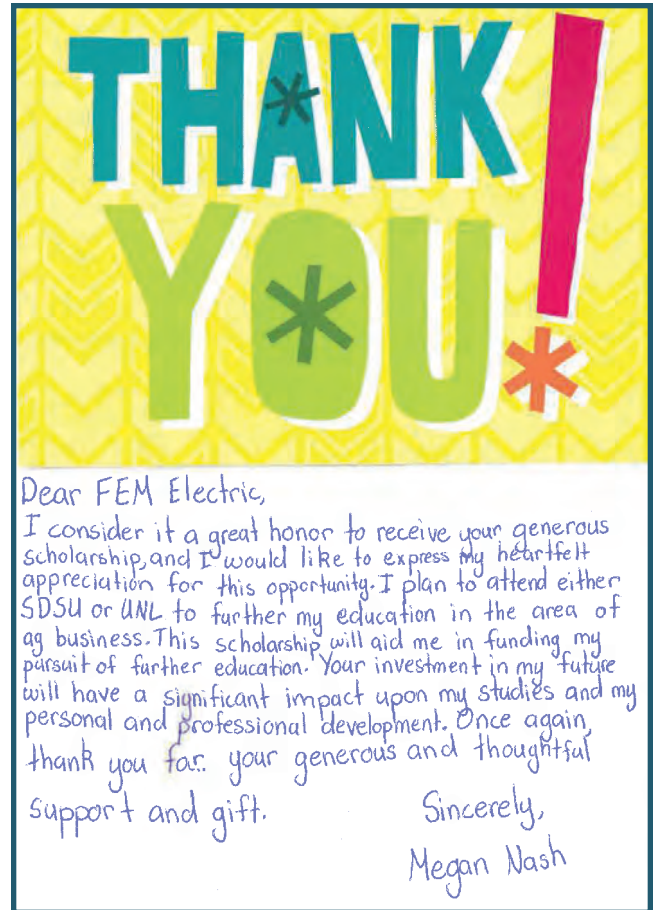 THANK
YOU!
Dear FEM Electric,
I consider it a great honor to receive your generous
scholarship, and I would like to express my heartfelt
appreciation for this opportunity. I plan to attend either
SDSU or UNL to further my education in the area of
ag business. This scholarship will aid me in funding my
pursuit of further education. Your investment in my future
will have a significant impact upon my studies and my
personal and professional development. Once again,
thank you for your generous and thoughtful
support and gift.
Sincerely,
Megan Nash